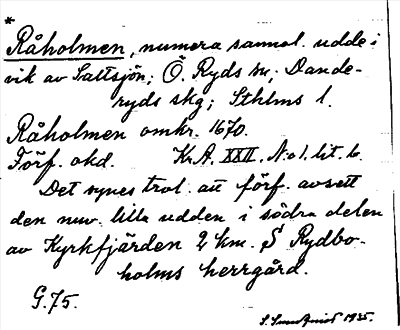 *
Råholmen, numera sannol. udde i
vik av Saltsjön; Ö. Ryds sn; Dande-
ryds skg; Sthlms l.
Råholmen omkr. 1670.
Förf. okd. Kr. A. XXII. N:o 1. lit. b.
Det synes trol. att förf. avsett
den nuv. lilla udden i södra delen
av Kyrkfjärden 2 km. S Rydbo-
holms herrgård.
G. 75.
1935.